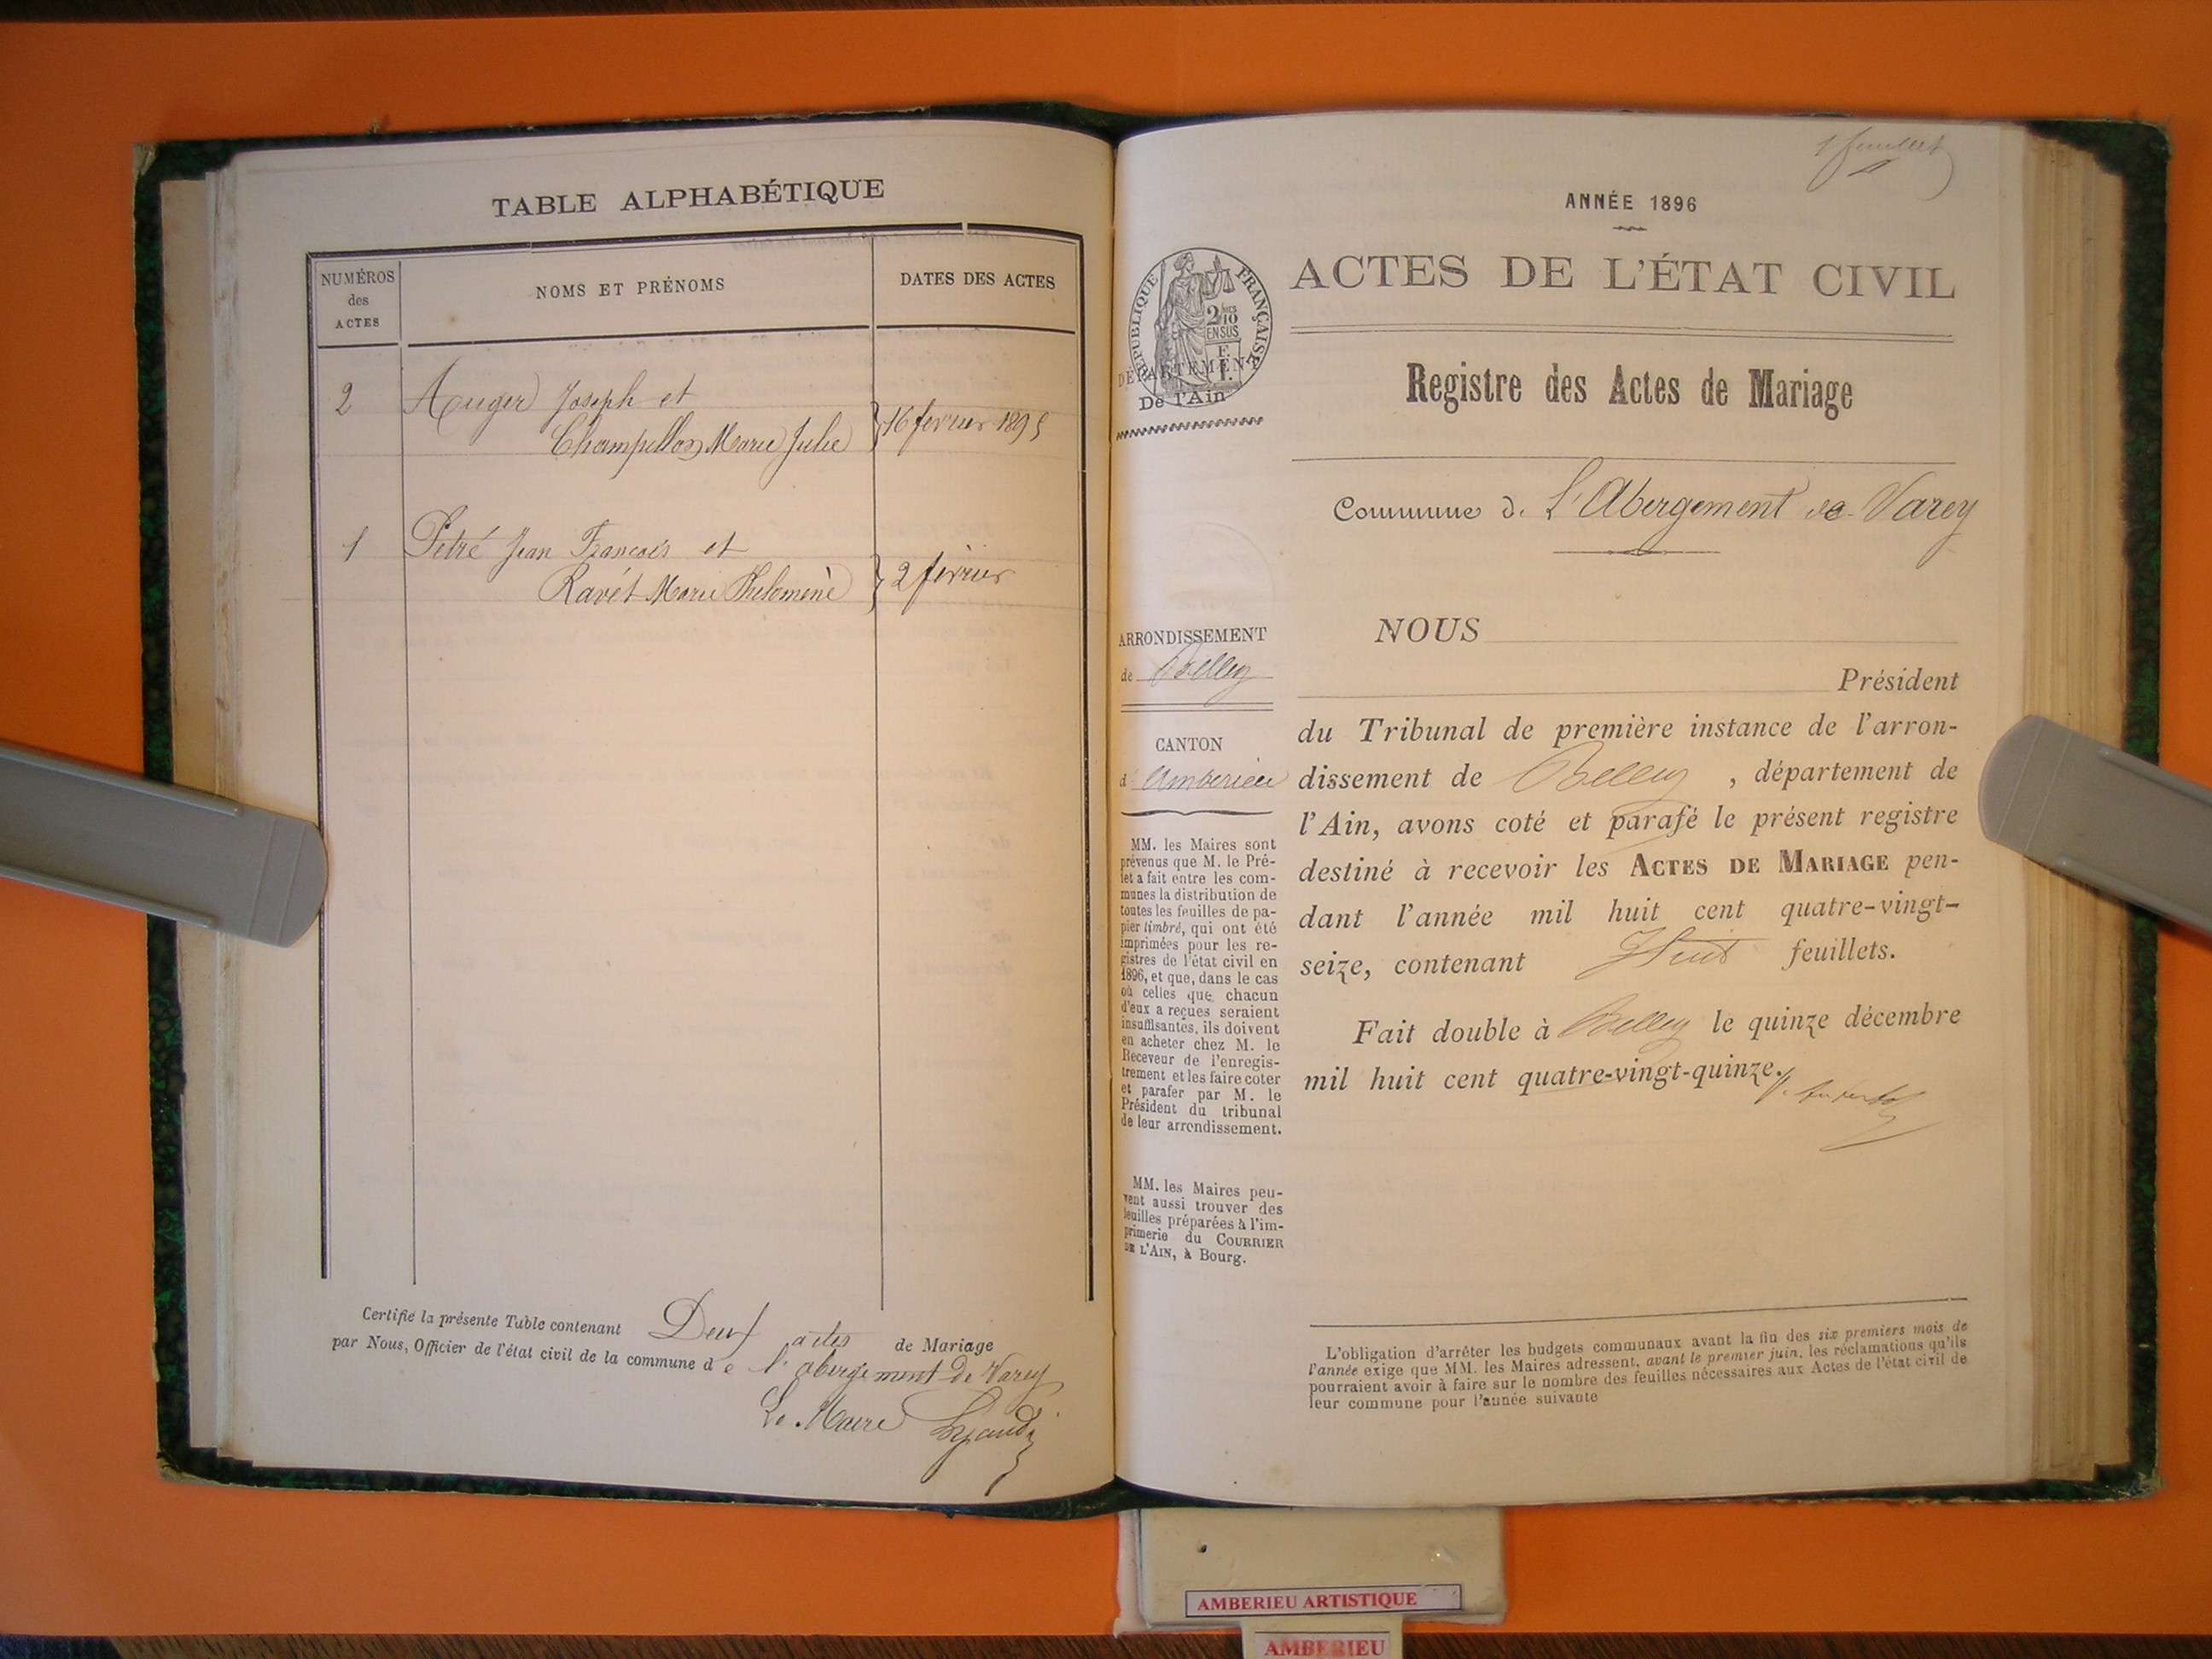 TABLE ALPHABÉTIQUE
NUMÉROS
des
ACTES
NOMS ET PRÉNOMS
DATES DES ACTES
2 Auger Joseph et
Champillon Marie Julie } 16 fevrier 1895
1 Pétré Jean Francois et
Ravét Marie Philomène } 2 février
Certifié la présente Table contenant Deux actes de Mariage
par Nous, Officier de l'état civil de la commune de l'abergement de Varey
Le Maire
1er feuillet
ANNÉE 1896
ACTES DE L'ÉTAT CIVIL
RÉPUBLIQUE FRANÇAISE
2/10
EN SUS
DÉPARTEMENT
De l'Ain
Registre des Actes de Mariage
Commune de L'Abergement de Varey
ARRONDISSEMENT
de Belley
CANTON
d'Amberieu
MM. les Maires sont
prévenus que M. le Pré-
fet a fait entre les com-
munes la distribution de
toutes les feuilles de pa-
pier timbré, qui ont été
imprimées pour les re-
gistres de l'état civil en
1896, et que, dans le cas
où celles que chacun
d'eux a reçues seraient
insuffisantes, ils doivent
en acheter chez M. le
Receveur de l'enregis-
trement et les faire coter
et parafer par M. le
Président du tribunal
de leur arrondissement.
MM. les Maires peu-
vent aussi trouver des
feuilles préparées à l'im-
primerie du COURRIER
DE L'AIN, à Bourg.
NOUS
Président
du Tribunal de première instance de l'arron-
dissement de Belley, département de
l'Ain, avons coté et parafé le présent registre
destiné à recevoir les ACTES DE MARIAGE pen-
dant l'année mil huit cent quatre-vingt-
seize, contenant Huit feuillets.
Fait double à Belley le quinze décembre
mil huit cent quatre-vingt-quinze.
L'obligation d'arrêter les budgets communaux avant la fin des six premiers mois de
l'année exige que MM. les Maires adressent, avant le premier juin, les réclamations qu'ils
pourraient avoir à faire sur le nombre des feuilles nécessaires aux Actes de l'état civil de
leur commune pour l'année suivante
AMBERIEU ARTISTIQUE
AMBERIEU